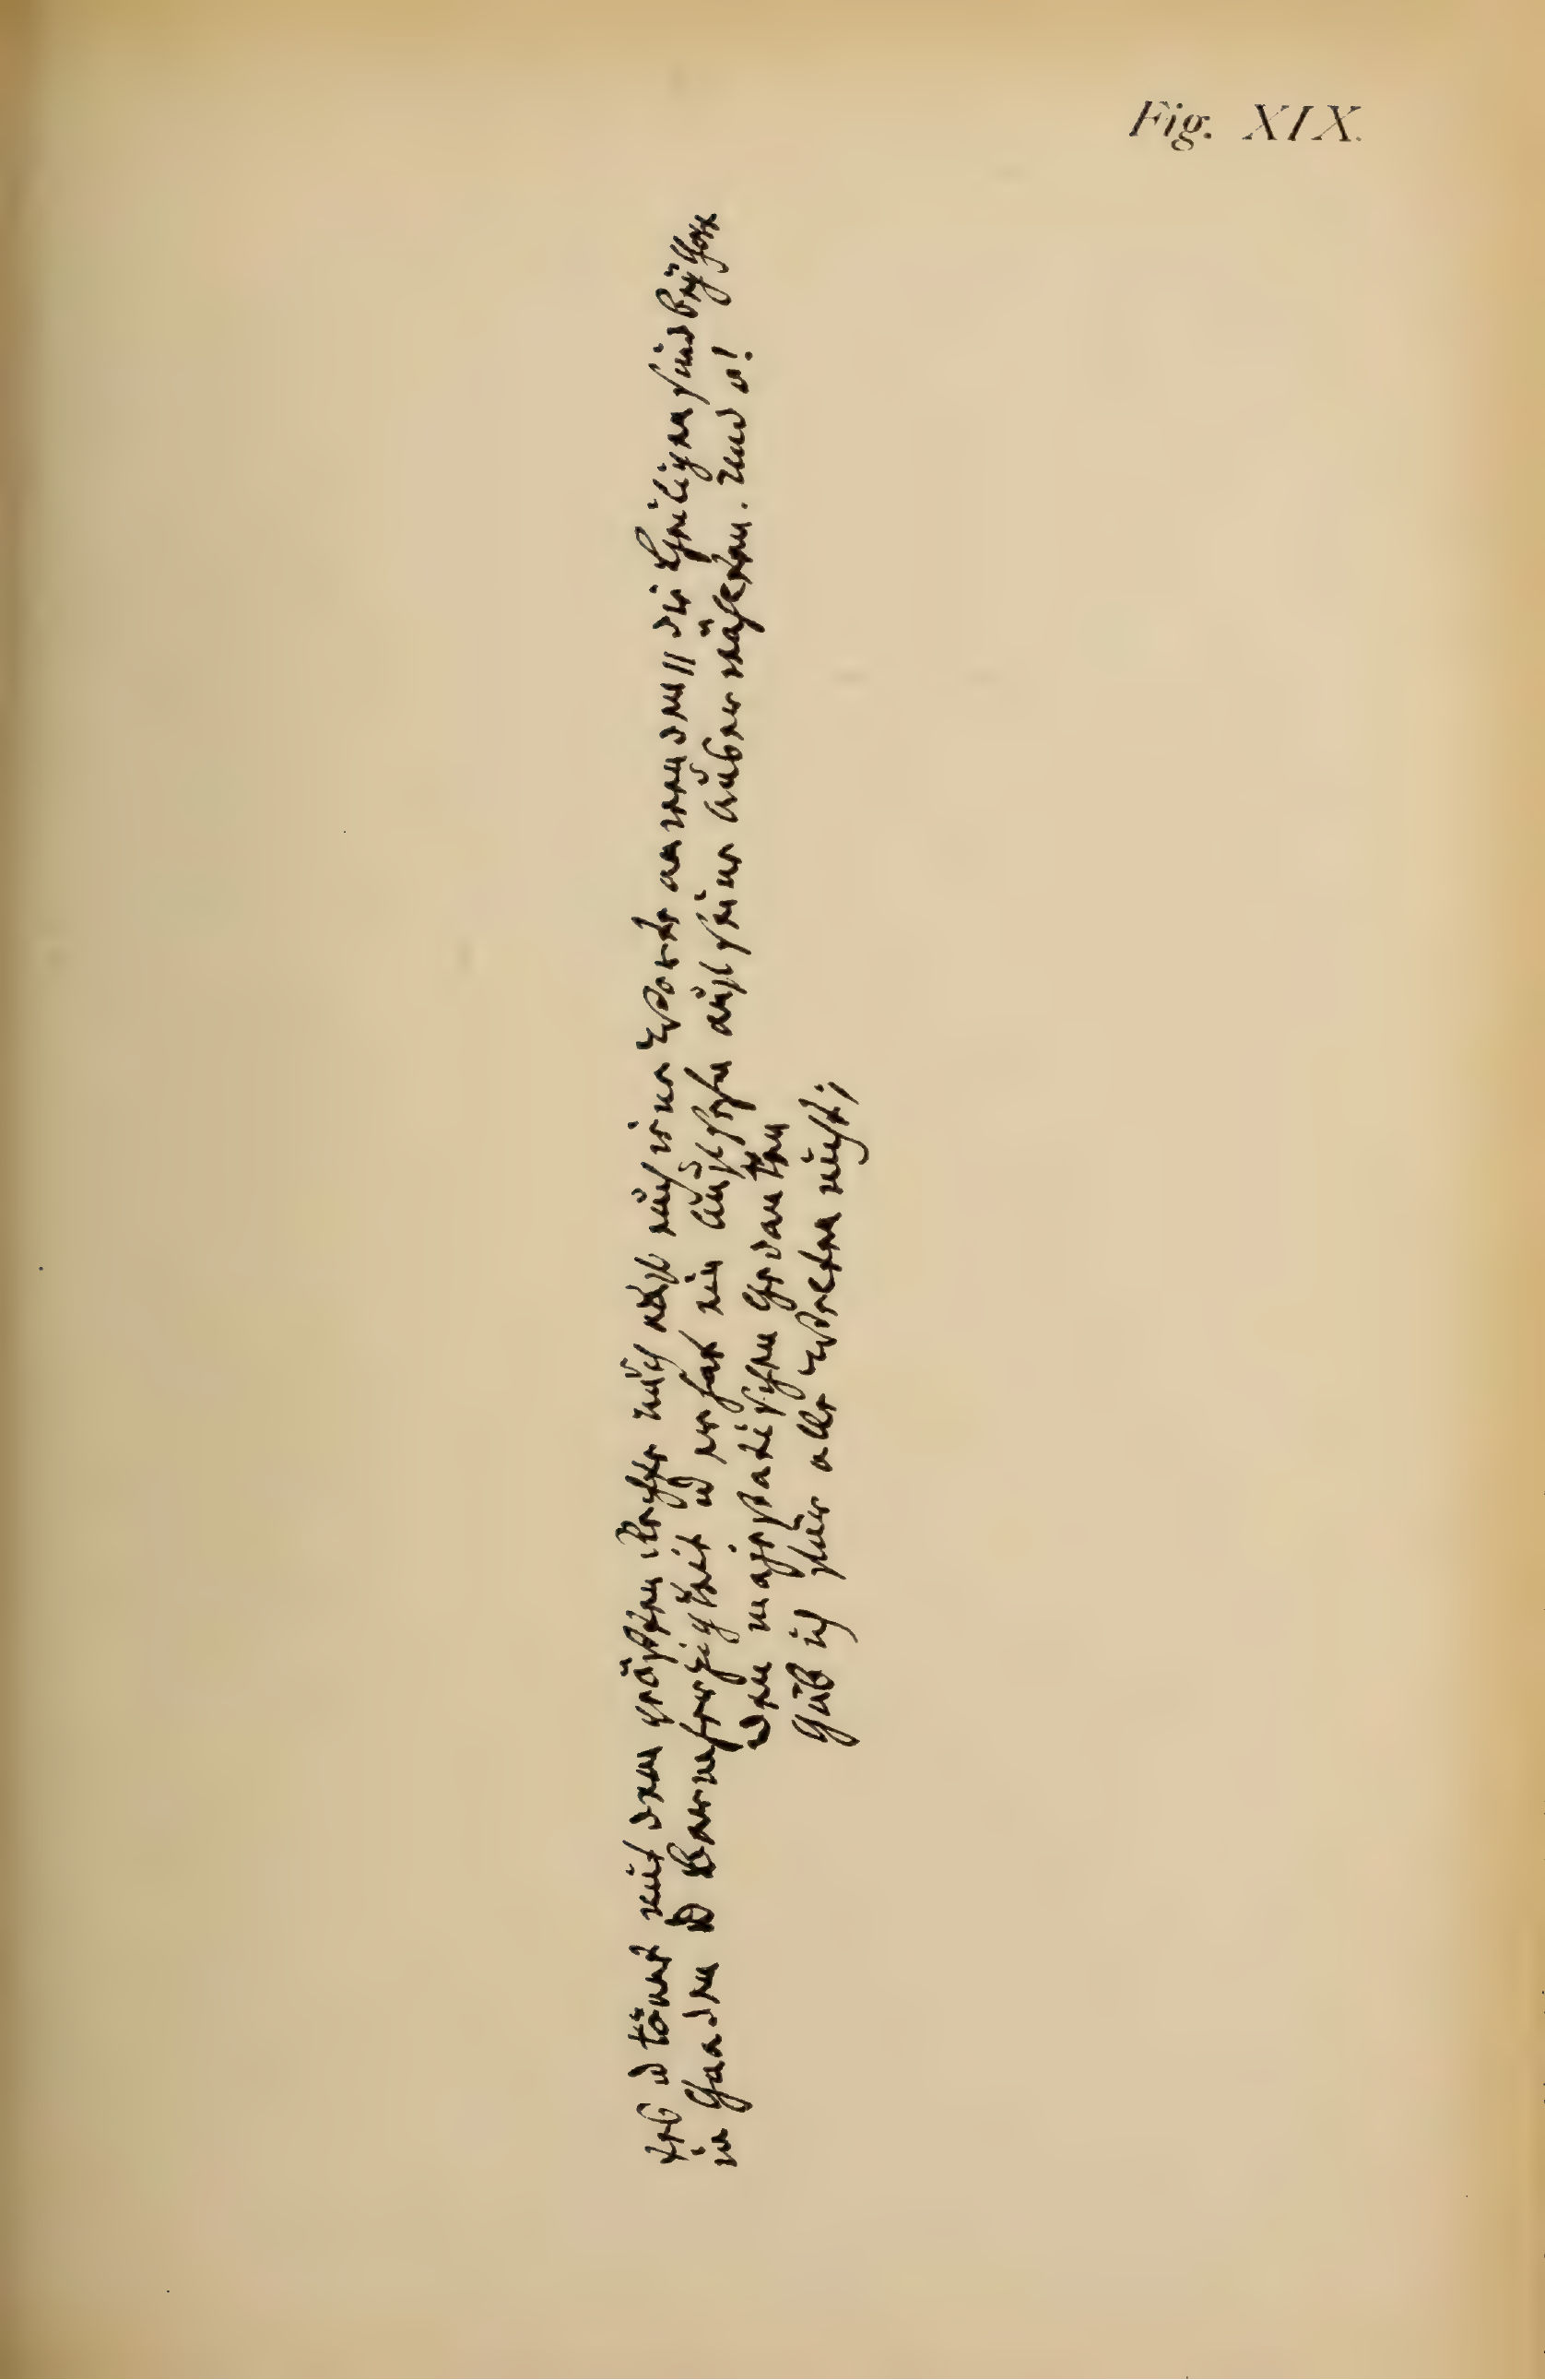 Fig. XIX.
leb u könnt mit dem größten Rechte mich noch eines Worte anwenden // die Heiligen sind bey Gott
in Gnaden u Barmherzigkeit u er hat ein Aufsehen auf seine Auserwählten. Und o!
Den majestätischen Gedanken
Gäb ich für alle Welten nicht;